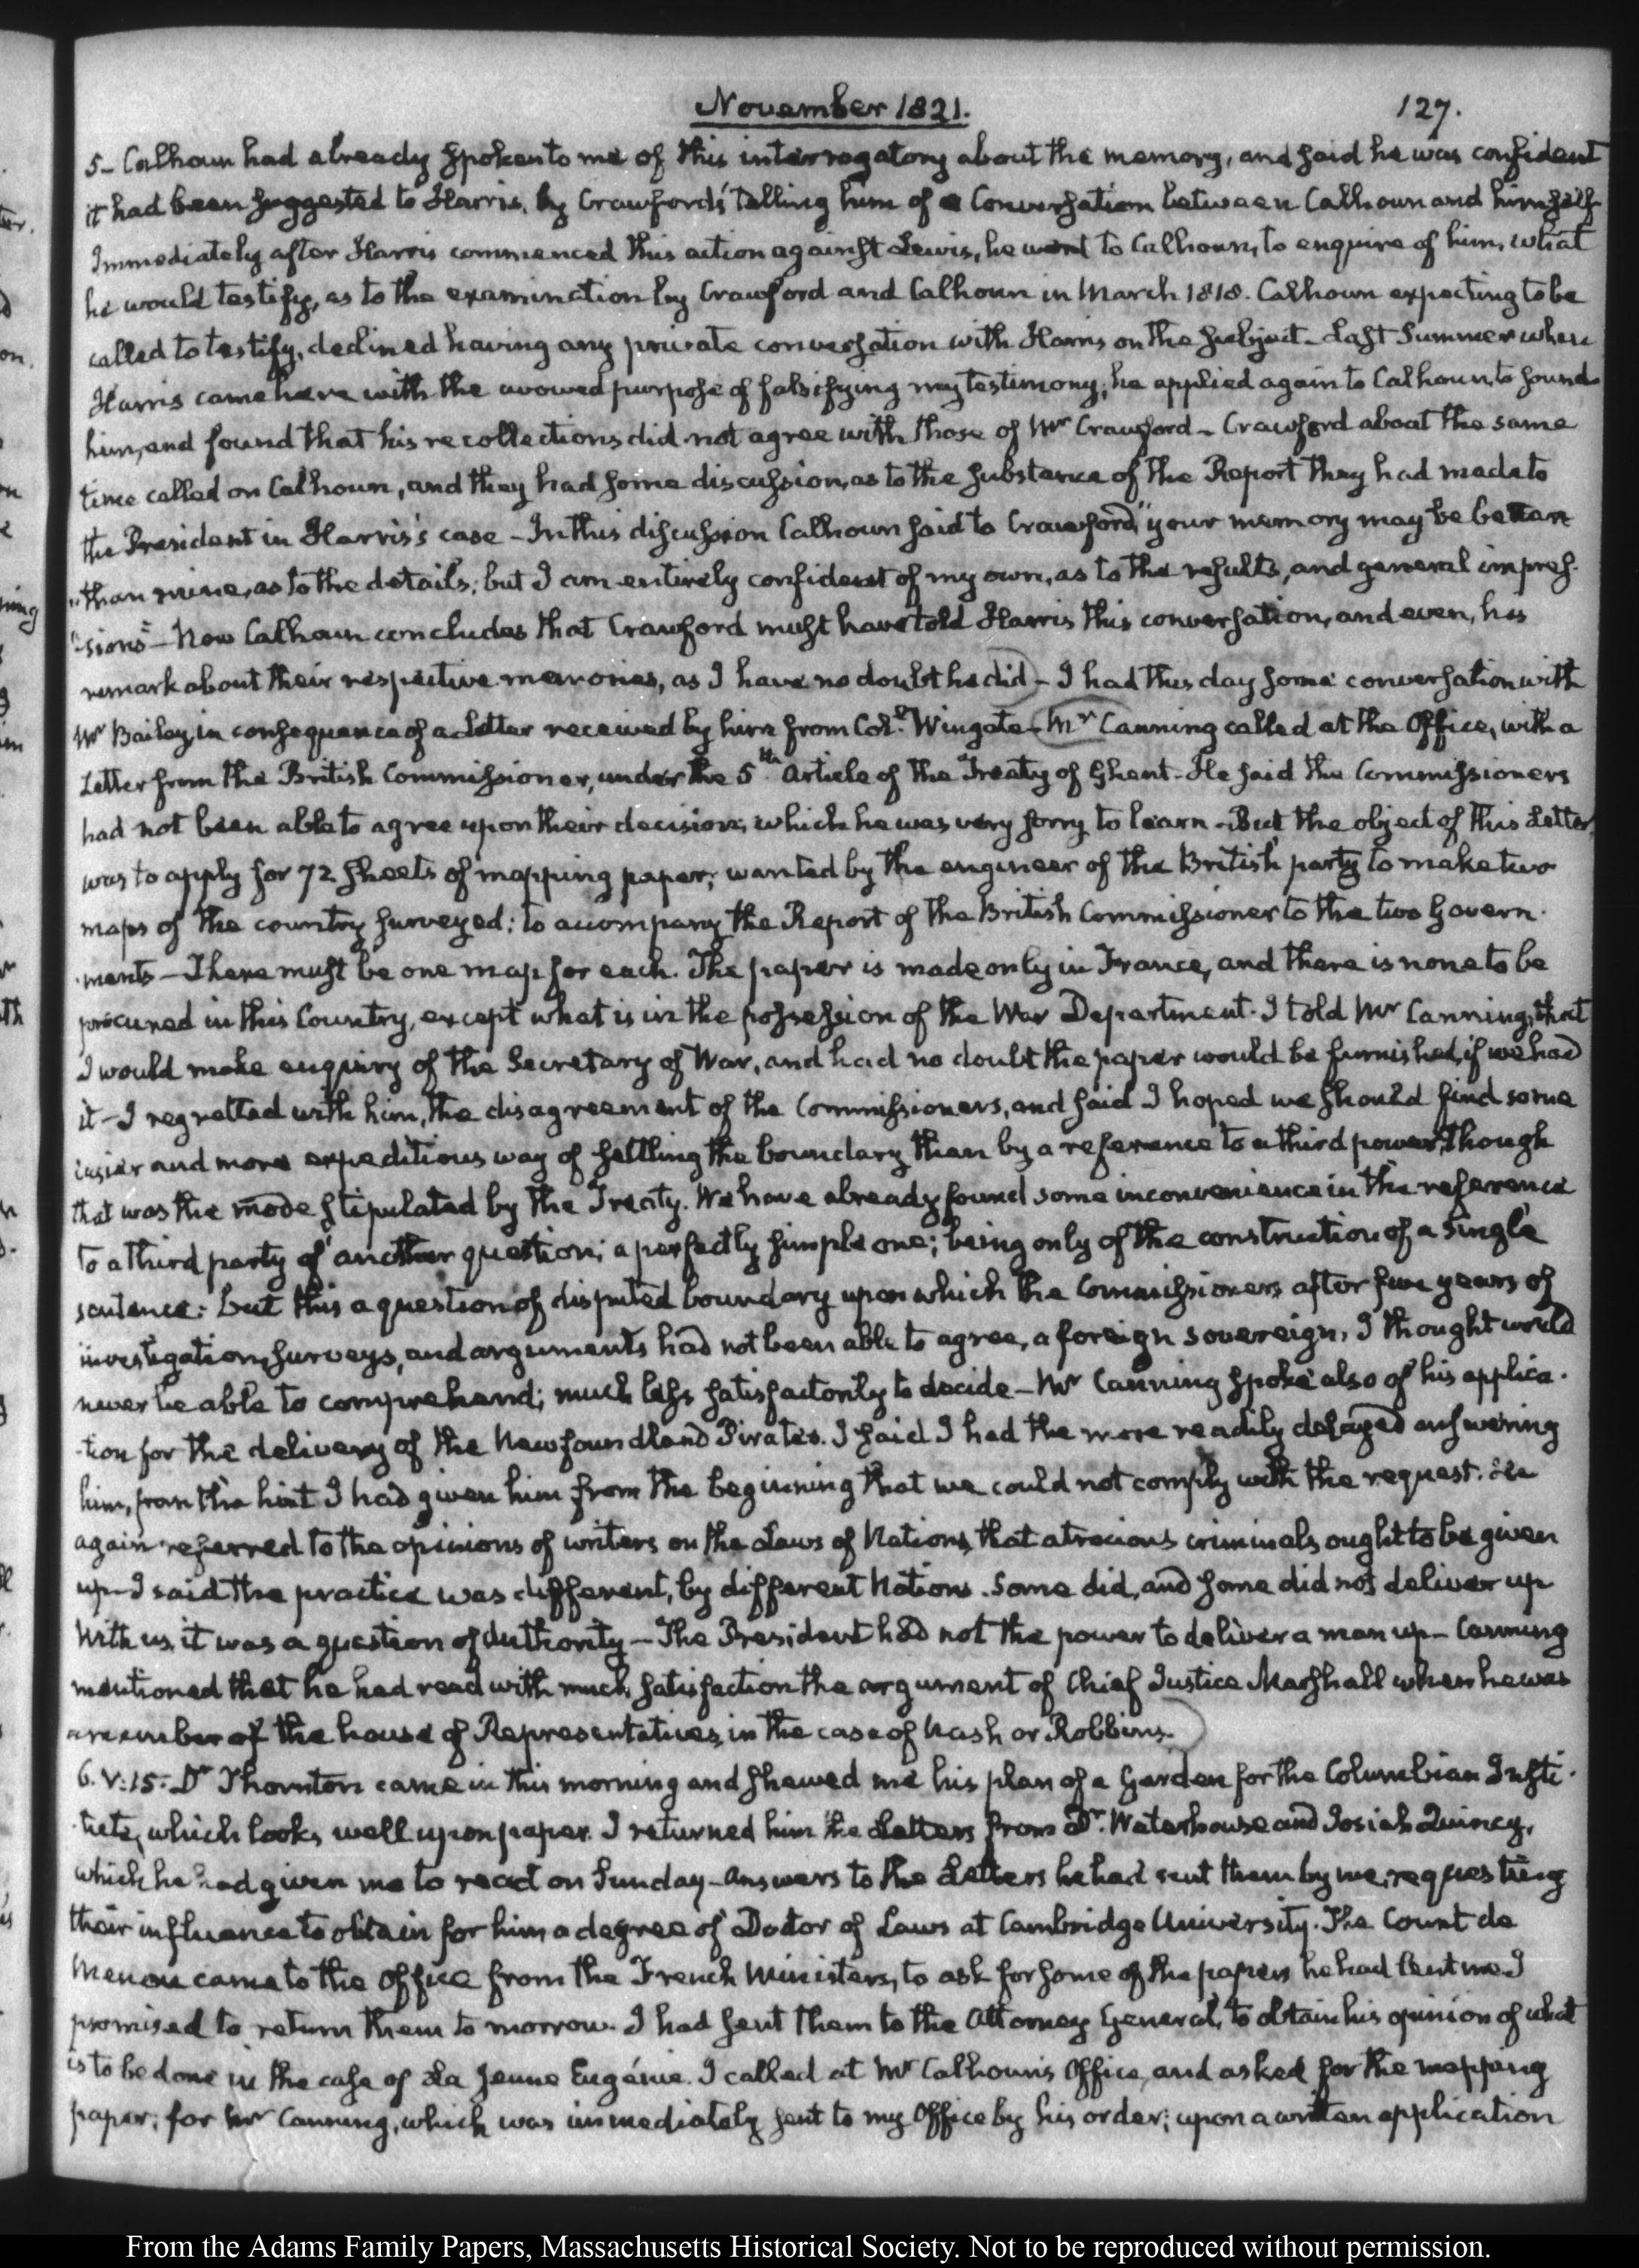 November 1821.
127.
5- Calhoun had already spoken to me of this interrogatory about the memory, and said he was confident
it had been suggested to Harris, by Crawford's telling him of a Conversation between Calhoun and himself
Immediately after Harris commenced this action against Lewis, he went to Calhoun, to enquire of him, what
he would testify, as to the examination by Crawford and Calhoun in March 1818. Calhoun expecting to be
called to testify, declined having any private conversation with Harris on the subject- Last Summer when
Harris came here with the avowed purpose of falsifying my testimony, he applied again to Calhoun, to sound
him, and found that his recollections did not agree with those of Mr Crawford- Crawford about the same
time called on Calhoun, and they had some discussion, as to the substance of the Report they had made to
the President in Harris's case- In this discussion Calhoun said to Crawford, "your memory may be better
"than mine, as to the details; but I am entirely confident of my own, as to the results, and general impres-
"-sions"- Now Calhoun concludes that Crawford must have told Harris this conversation, and even, his
remark about their respective memories, as I have no doubt he did- I had this day some conversation with
Mr Bailey in consequence of a Letter received by him from Col. Wingate- Mr Canning called at the Office, with a
Letter from the British Commissioner, under the 5th Article of the Treaty of Ghent- He said the Commissioners
had not been able to agree upon their decision, which he was very sorry to learn- But the object of this Letter
was to apply for 72 sheets of mapping paper, wanted by the engineer of the British party to make two
maps of the country surveyed: to accompany the Report of the British Commissioner to the two Govern-
-ments- There must be one map for each. The paper is made only in France, and there is none to be
procured in this Country, except what is in the possession of the War Department. I told Mr Canning, that
I would make enquiry of the Secretary of War, and had no doubt the paper would be furnished, if we had
it- I regretted with him, the disagreement of the Commissioners, and said I hoped we should find some
easier and more expeditious way of settling the boundary than by a reference to a third power, though
that was the mode stipulated by the Treaty. We have already found some inconvenience in the reference
to a third party of another question; a perfectly simple one; being only of the construction of a single
sentence: but this a question of disputed boundary upon which the Commissioners after five years of
investigation, surveys, and arguments had not been able to agree, a foreign sovereign, I thought would
never be able to comprehend; much less satisfactorily to decide- Mr Canning spoke also of his applica-
-tion for the delivery of the Newfoundland Pirates. I said I had the more readily delayed answering
him, from the hint I had given him from the beginning that we could not comply with the request. He
again referred to the opinions of writers on the Laws of Nations, that atrocious criminals ought to be given
up- I said the practice was different, by different Nations. Some did, and some did not deliver up
With us, it was a question of Authority- The President had not the power to deliver a man up- Canning
mentioned that he had read with much satisfaction the argument of Chief Justice Marshall when he was
a member of the house of Representatives, in the case of Nash or Robbins.
6. V:15. Dr Thornton came in this morning and shewed me his plan of a Garden for the Columbian Insti-
-tute, which looks well upon paper. I returned him the Letters from Dr. Waterhouse and Josiah Quincy,
which he had given me to read on Sunday- Answers to the Letters he had sent them by me, requesting
their influence to obtain for him a degree of Doctor of Laws at Cambridge University. The Count de
Menou came to the Office from the French Minister, to ask for some of the papers he had lent me. I
promised to return them to morrow. I had sent them to the Attorney General, to obtain his opinion of what
is to be done in the case of La Jeune Eugénie. I called at Mr Calhoun's Office, and asked for the mapping
paper; for Mr Canning, which was immediately sent to my Office by his order; upon a written application
From the Adams Family Papers, Massachusetts Historical Society. Not to be reproduced without permission.